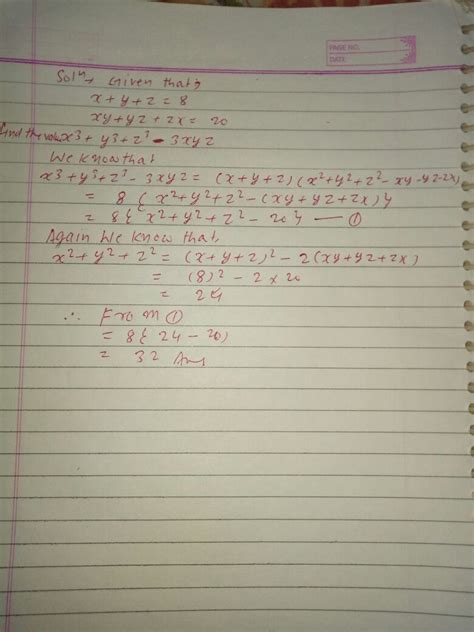 PAGE NO.
DATE
Solⁿ → Given that,
x + y + z = 8
xy + yz + zx = 20
find the value x³ + y³ + z³ - 3xyz
We know that
x³ + y³ + z³ - 3xyz = (x + y + z) (x² + y² + z² - xy - yz - zx)
= 8 { x² + y² + z² - (xy + yz + zx) }
= 8 { x² + y² + z² - 20 } — ①
Again We know that,
x² + y² + z² = (x + y + z)² - 2 (xy + yz + zx)
= (8)² - 2 × 20
= 24
∴ From ①
= 8 { 24 - 20)
= 32 Ans